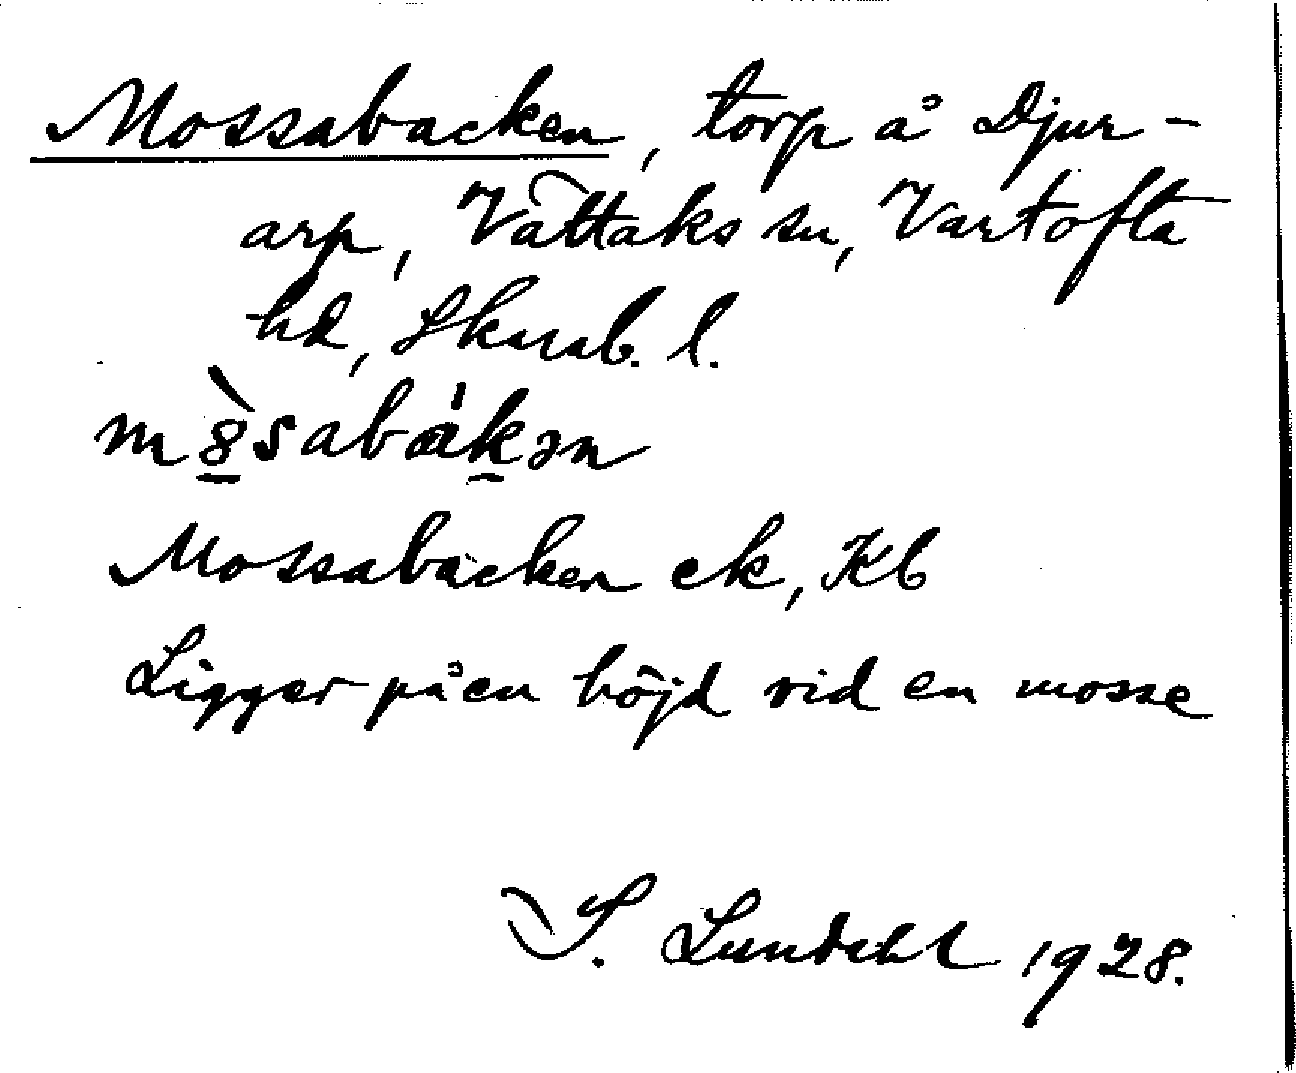 Mossabacken, torp å Djur-
arp, Våttaks sn, Vartofta
hd, Skarab. l.
m8̠̀sabák̠ən
Mossabacken ek, Kb
Ligger på en höjd vid en mosse
S. Lundahl 1928.